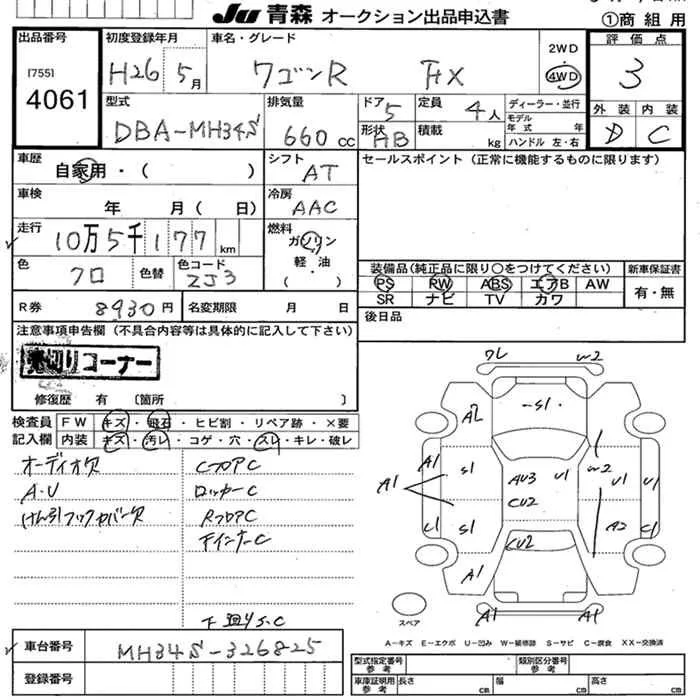 JU 青森 オークション出品申込書
①商組用
出品番号
[755]
4061
初度登録年月
H26 5月
車名・グレード
ワゴンR FX
2WD
・
4WD
評価点
3
型式
DBA-MH34S
排気量
660cc
ドア 5
形状 HB
定員 4人
積載 kg
ディーラー・並行
モデル
年式 年
ハンドル 左・右
外装 内装
D C
車歴
自家用・( )
シフト
AT
セールスポイント (正常に機能するものに限ります)
車検
年 月 ( 日)
冷房
AAC
走行
10万5千177km
燃料
ガソリン
・
軽油
( )
色
クロ
色替
色コード
ZJ3
装備品(純正品に限り○をつけてください)
PS RW ABS エアB AW
SR ナビ TV カワ
新車保証書
有・無
R券 8930円
名変期限 月 日
後日品
注意事項申告欄 (不具合内容等は具体的に記入して下さい)
売切りコーナー
修復歴 有 〔箇所 〕
検査員
記入欄
FW キズ・飛石・ヒビ割・リペア跡・×要
内装 キズ・汚レ・コゲ・穴・スレ・キレ・破レ
オーディオ欠
A・U
けん引フックカバー欠
CフロアC
ロッカーC
RフロアC
テインナーC
下廻りS.C
ワレ W2
A2 S1
A1 A1 S1 AU3 U1 W2 U1 U1
CU2
U1 S1 CU2 A2 C1
A1 A1
A1 A1
スペア
A-キズ E-エクボ U-凹み W-補修跡 S-サビ C-腐食 XX-交換済
車台番号
MH34S-326825
登録番号
型式指定番号
参考
類別区分番号
参考
車庫証明用
参考
長さ cm
幅 cm
高さ cm